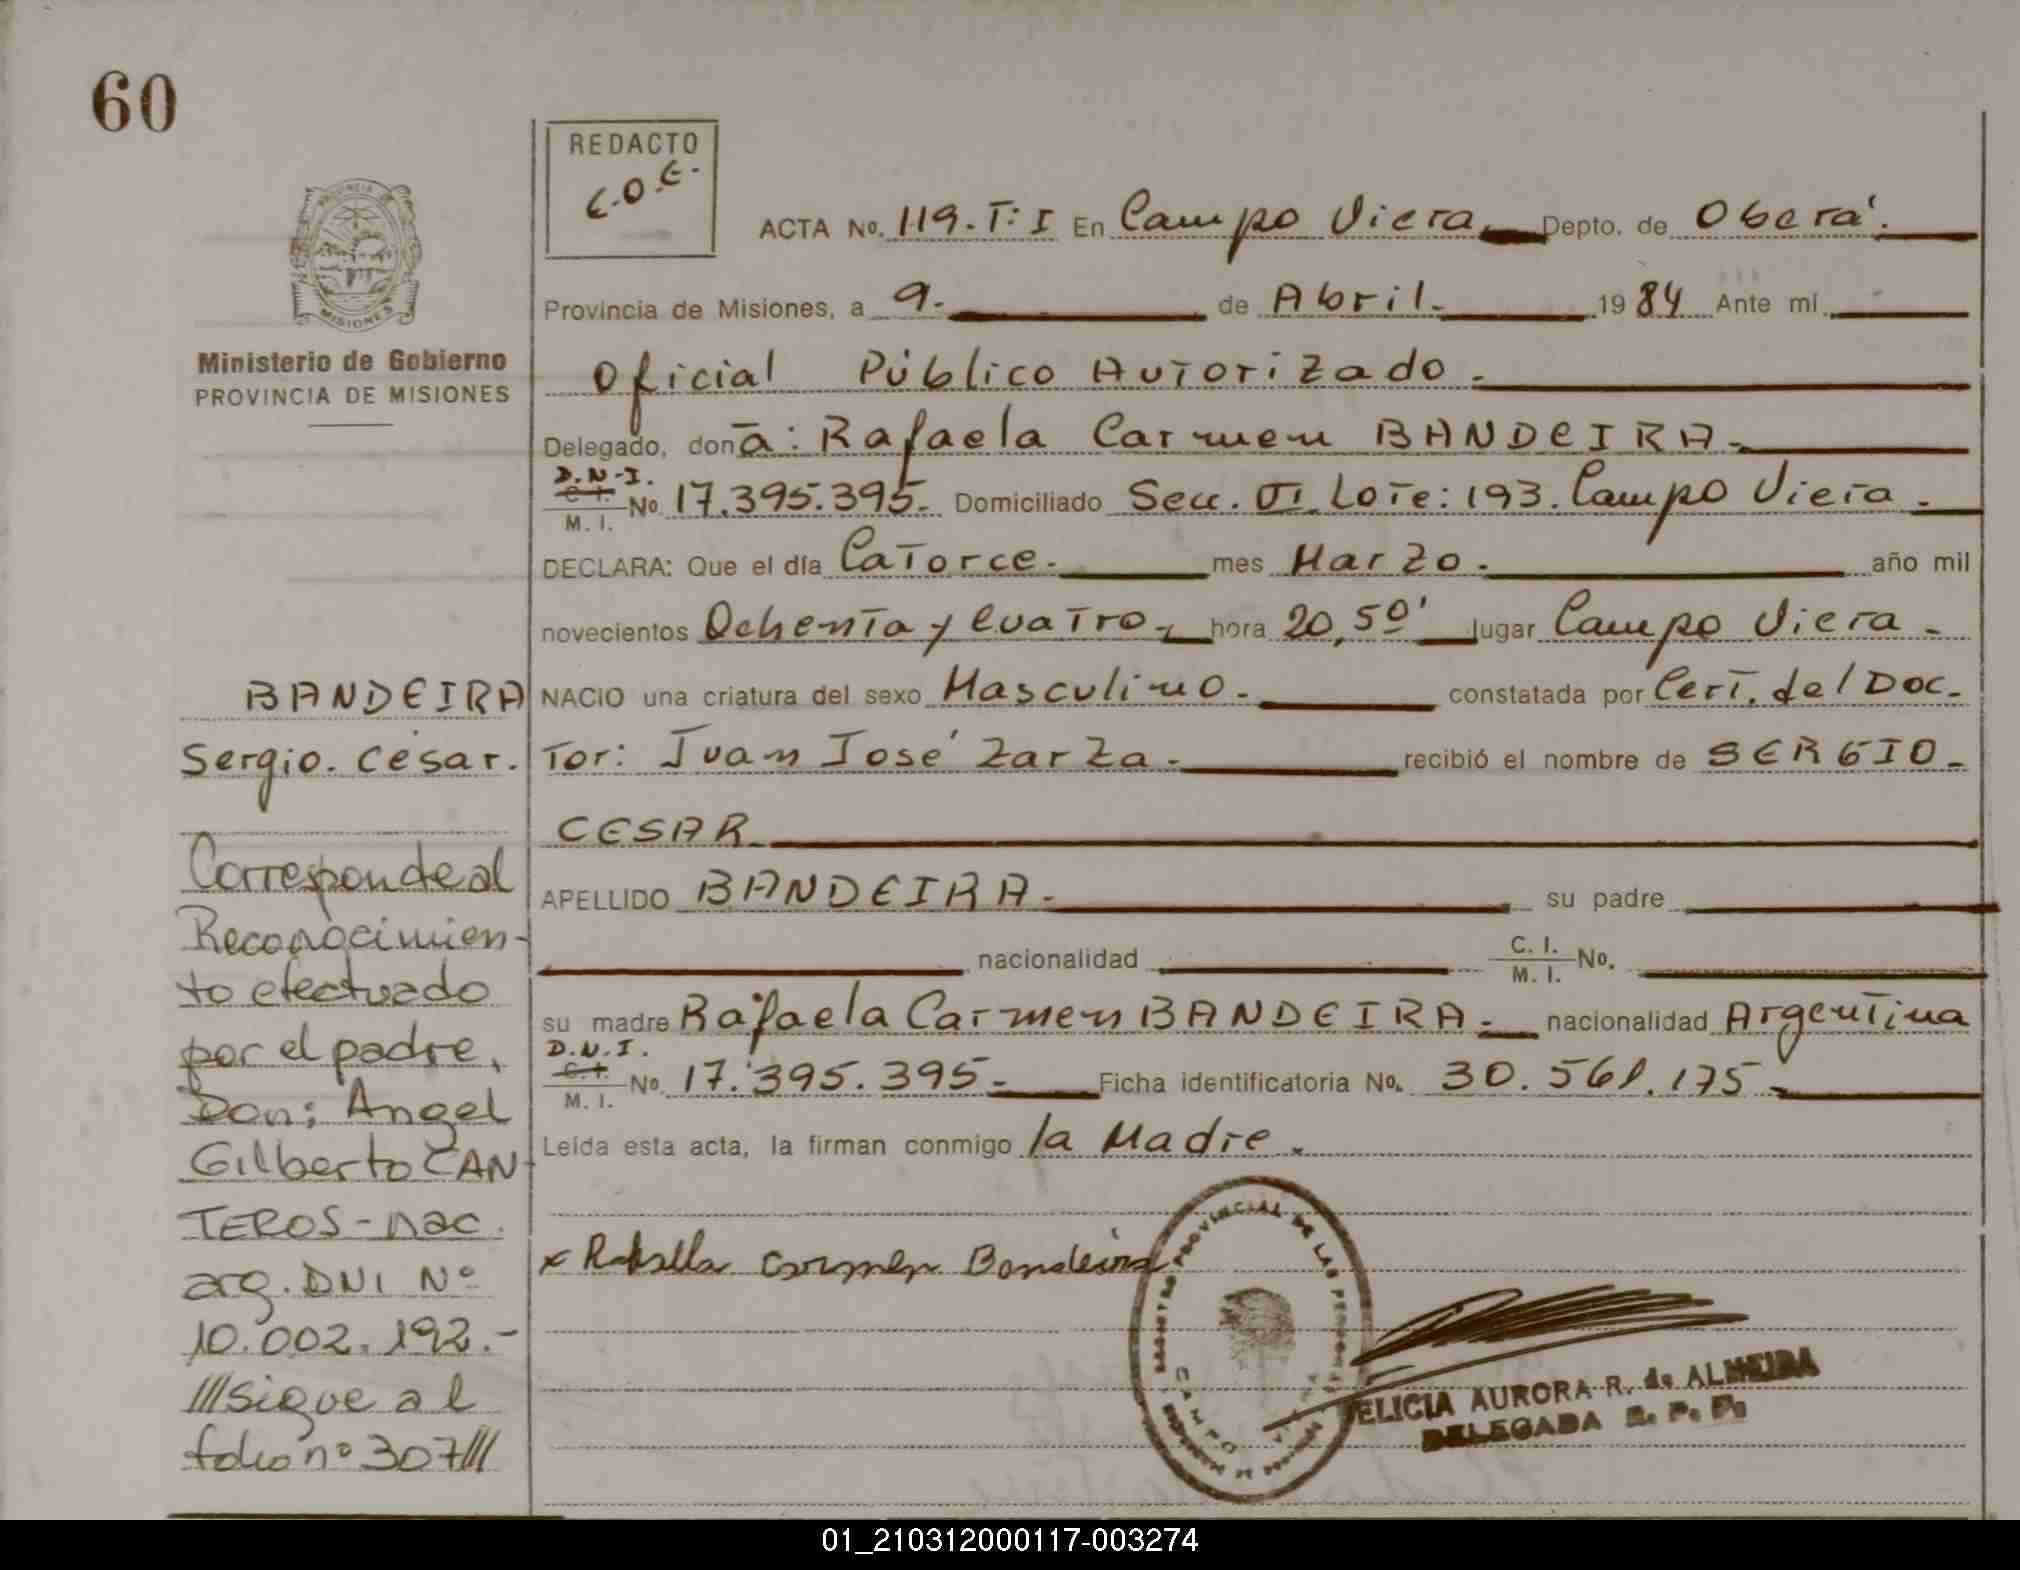 60
REDACTO
C.O.E.
ACTA No. 119. T: I En Campo Viera. Depto. de Oberá.
Provincia de Misiones, a 9. de Abril. 1984 Ante mí
Oficial Público Autorizado.
Delegado, doña: Rafaela Carmen BANDEIRA.
D.N.I.
C. I.
M. I. No 17.395.395. Domiciliado Secc. VI. Lote: 193. Campo Viera.
DECLARA: Que el día Catorce. mes Marzo. año mil
novecientos Ochenta y Cuatro. hora 20,50' lugar Campo Viera.
NACIO una criatura del sexo Masculino. constatada por Cert. del Doc-
tor: Juan José Zarza. recibió el nombre de SERGIO
CESAR
APELLIDO BANDEIRA. su padre
nacionalidad C. I. M. I. No.
su madre Rafaela Carmen BANDEIRA. nacionalidad Argentina
D.N.I.
C. I.
M. I. No. 17.395.395. Ficha identificatoria No. 30.561.175.
Leída esta acta, la firman conmigo la Madre.
x Rafaella Carmen Bandeira
PROVINCIA
MISIONES
Ministerio de Gobierno
PROVINCIA DE MISIONES
BANDEIRA
Sergio. César.
Corresponde al
Reconocimien-
to efectuado
por el padre,
Don; Angel
Gilberto CAN
TEROS-nac.
arg. DNI Nº
10.002.192.-
///sigue al
folio nº 307///
PROVINCIAL DE LAS PERSONAS
CAMPO VIERA
FELICIA AURORA R. de ALMEIDA
DELEGADA R. P. P.
01_210312000117-003274